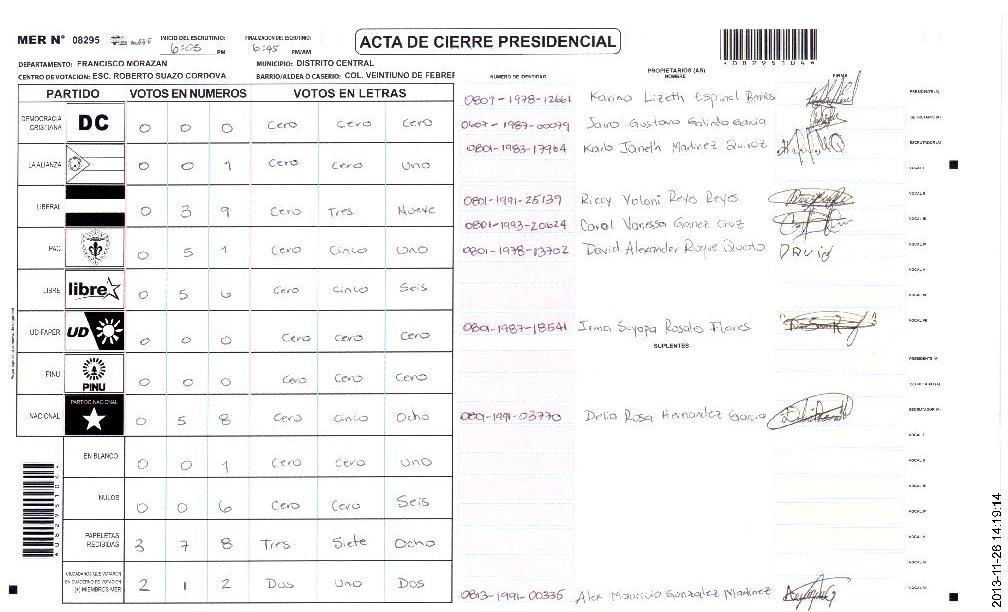 MER N° 08295
INICIO DEL ESCRUTINIO: 6:05 PM
FINALIZACION DEL ESCRUTINIO: 6:45 PM/AM
ACTA DE CIERRE PRESIDENCIAL
DEPARTAMENTO: FRANCISCO MORAZAN
MUNICIPIO: DISTRITO CENTRAL
CENTRO DE VOTACION: ESC. ROBERTO SUAZO CORDOVA
BARRIO/ALDEA O CASERIO: COL. VEINTIUNO DE FEBRER
PARTIDO VOTOS EN NUMEROS VOTOS EN LETRAS
DEMOCRACIA CRISTIANA DC 0 0 0 Cero Cero Cero
LA ALIANZA 0 0 1 Cero Cero Uno
LIBERAL 0 3 9 Cero Tres Nueve
PAC 0 5 1 Cero Cinco Uno
LIBRE libre 0 5 6 Cero Cinco Seis
UD-FAPER UD 0 0 0 Cero Cero Cero
PINU PINU 0 0 0 Cero Cero Cero
NACIONAL PARTIDO NACIONAL 0 5 8 Cero Cinco Ocho
EN BLANCO 0 0 1 Cero Cero Uno
NULOS 0 0 6 Cero Cero Seis
PAPELETAS RECIBIDAS 3 7 8 Tres Siete Ocho
CIUDADANOS QUE VOTARON EN CUADERNO DE VOTACION (+) MIEMBROS MER 2 1 2 Dos Uno Dos
NUMERO DE IDENTIDAD
PROPIETARIOS (AS)
NOMBRE
FIRMA
0807-1978-12661 Karina Lizeth Espinal PRESIDENTE(A)
0607-1987-00079 Jairo Gustavo Galindo Garcia SECRETARIO(A)
0801-1983-17964 Karla Janeth Martinez Quiroz ESCRUTADOR(A)
VOCAL I
0801-1991-25139 Riccy Yoloni Reyes Reyes VOCAL II
0801-1993-20624 Carol Vanessa Gomez Cruz VOCAL III
0801-1978-13702 David Alexander Roque David VOCAL IV
VOCAL V
VOCAL VI
0801-1987-18541 Irma Suyapa Rosales Flores VOCAL VII
SUPLENTES
PRESIDENTE(A)
SECRETARIO(A)
0801-1991-03770 Delia Rosa Hernandez Garcia ESCRUTADOR(A)
VOCAL I
VOCAL II
VOCAL III
VOCAL IV
VOCAL V
VOCAL VI
0813-1991-00335 Alex Mauricio Gonzalez Martinez
*08295104*
*08295104*
2013-11-26 14:19:14